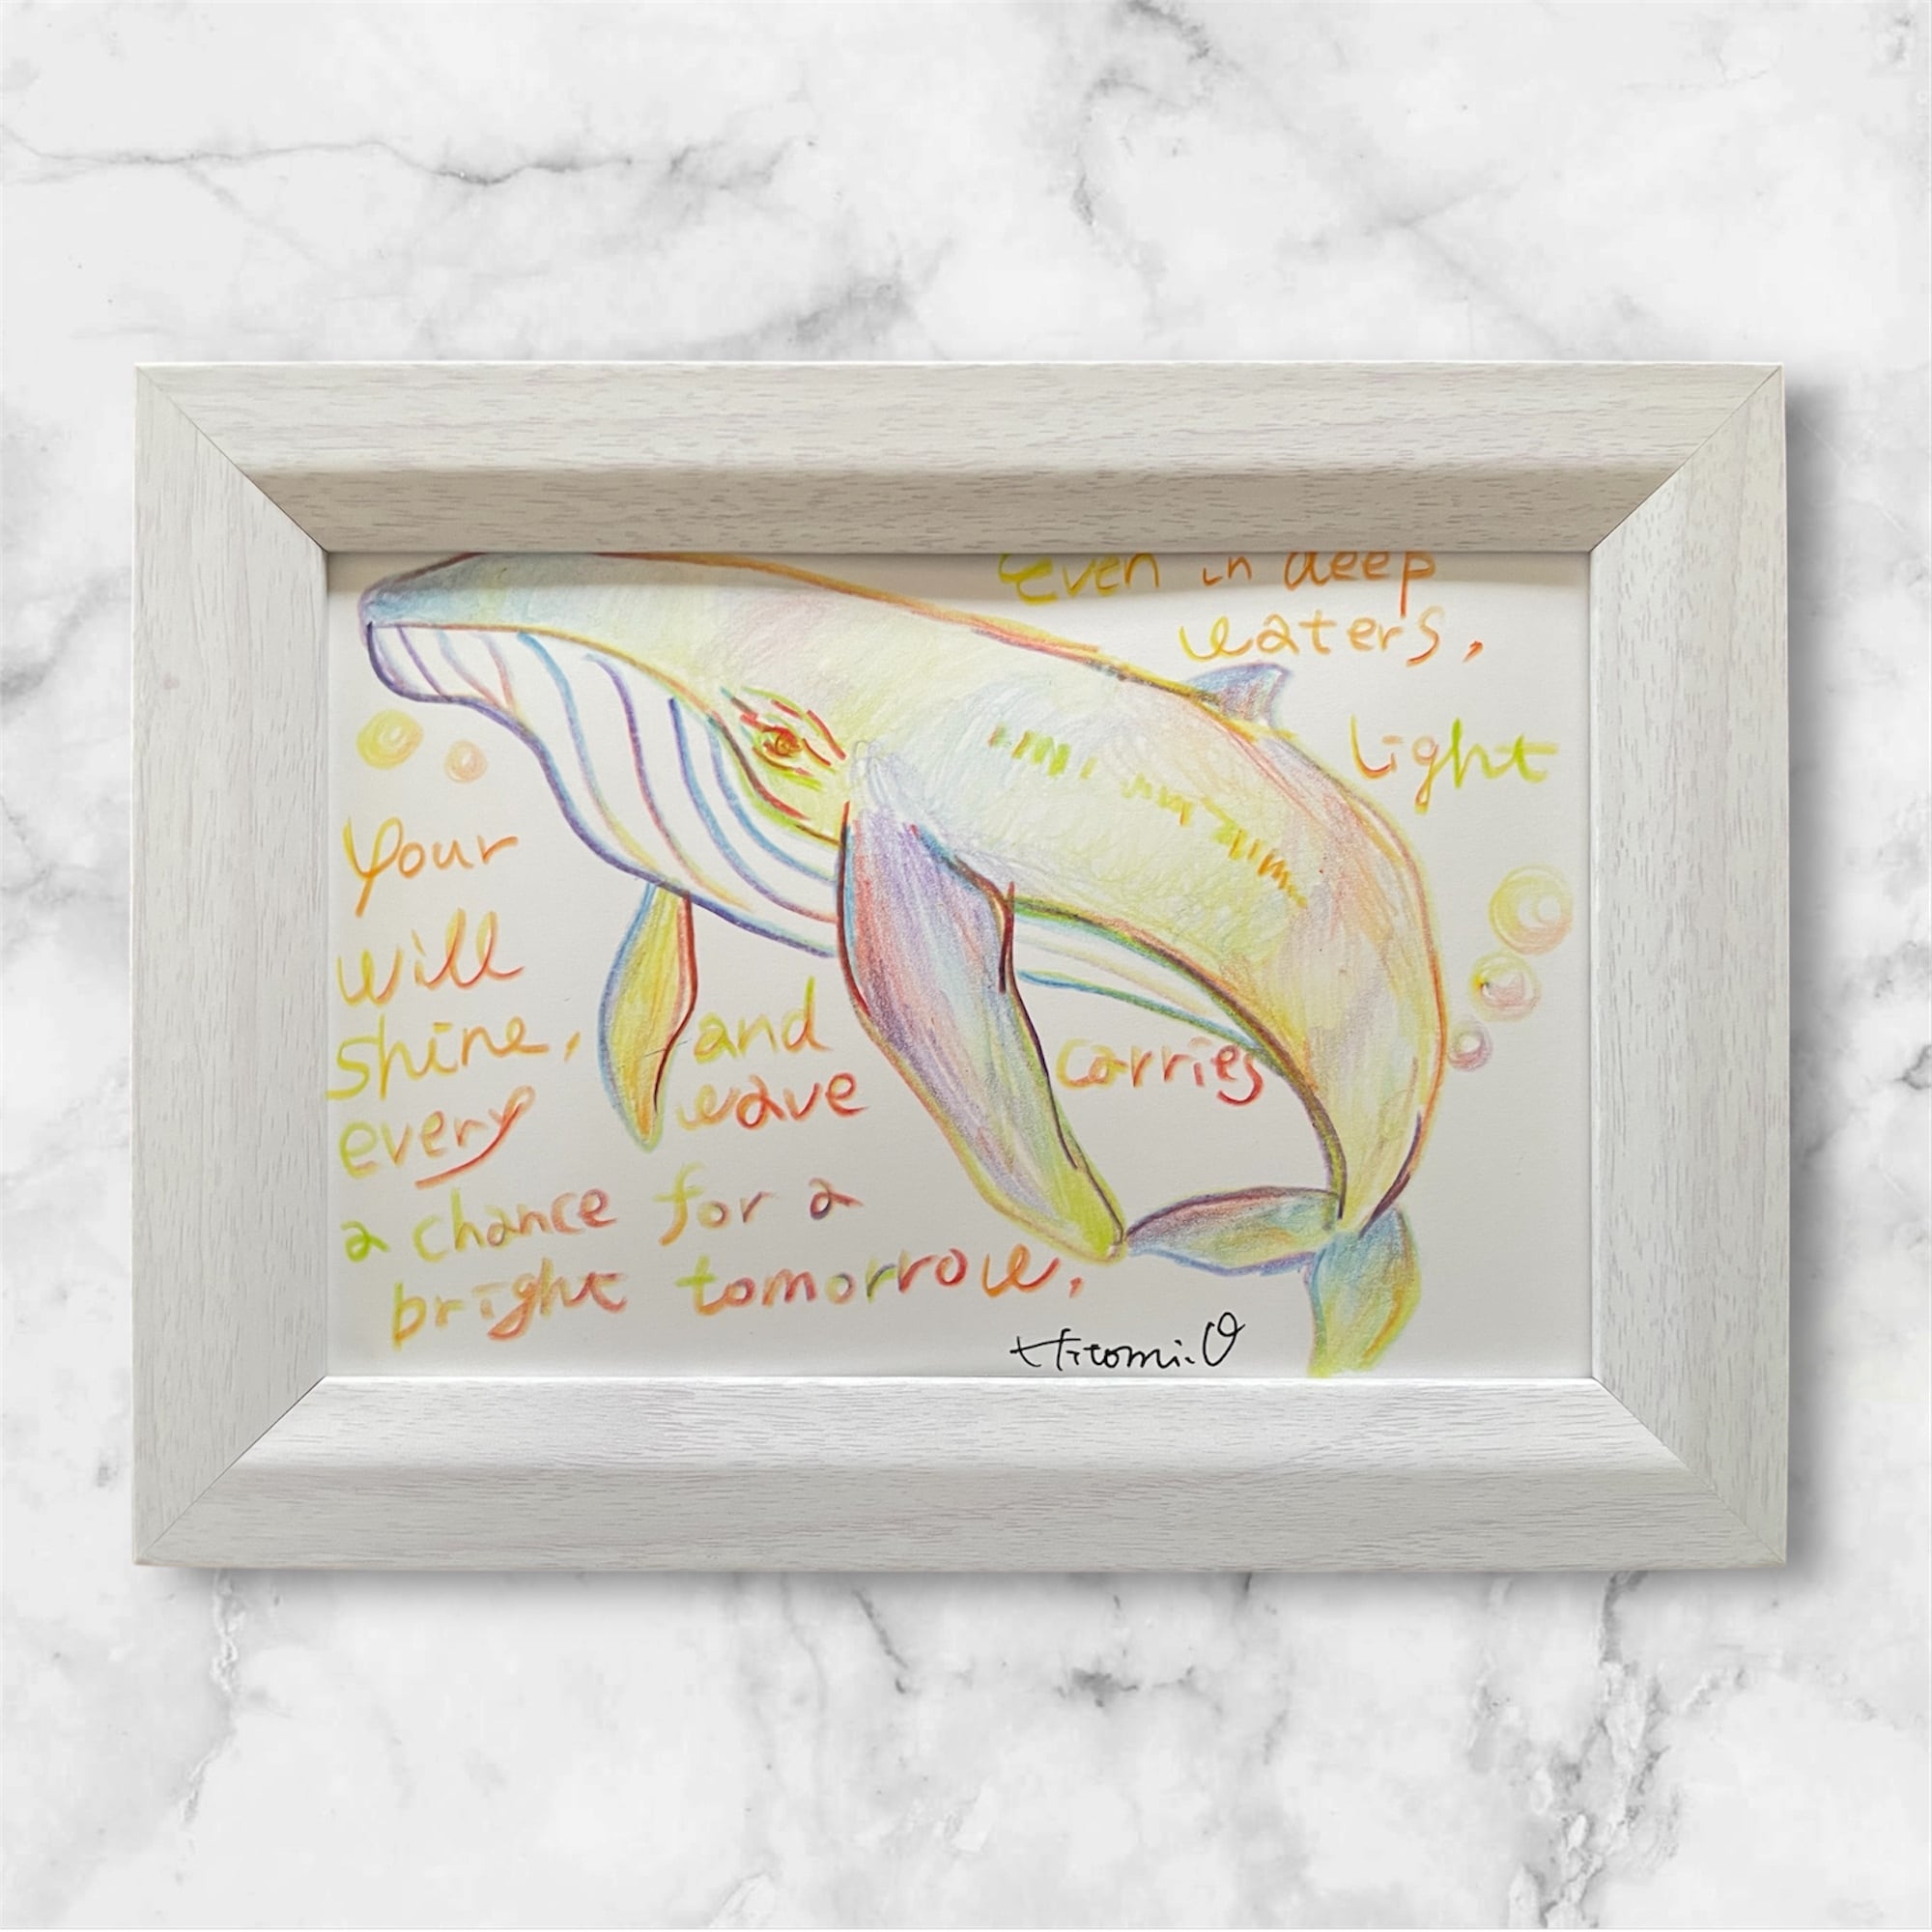 even in deep
waters,
Your light
will
shine, and
every wave carries
a chance for a
bright tomorrow,
Hitomi.O